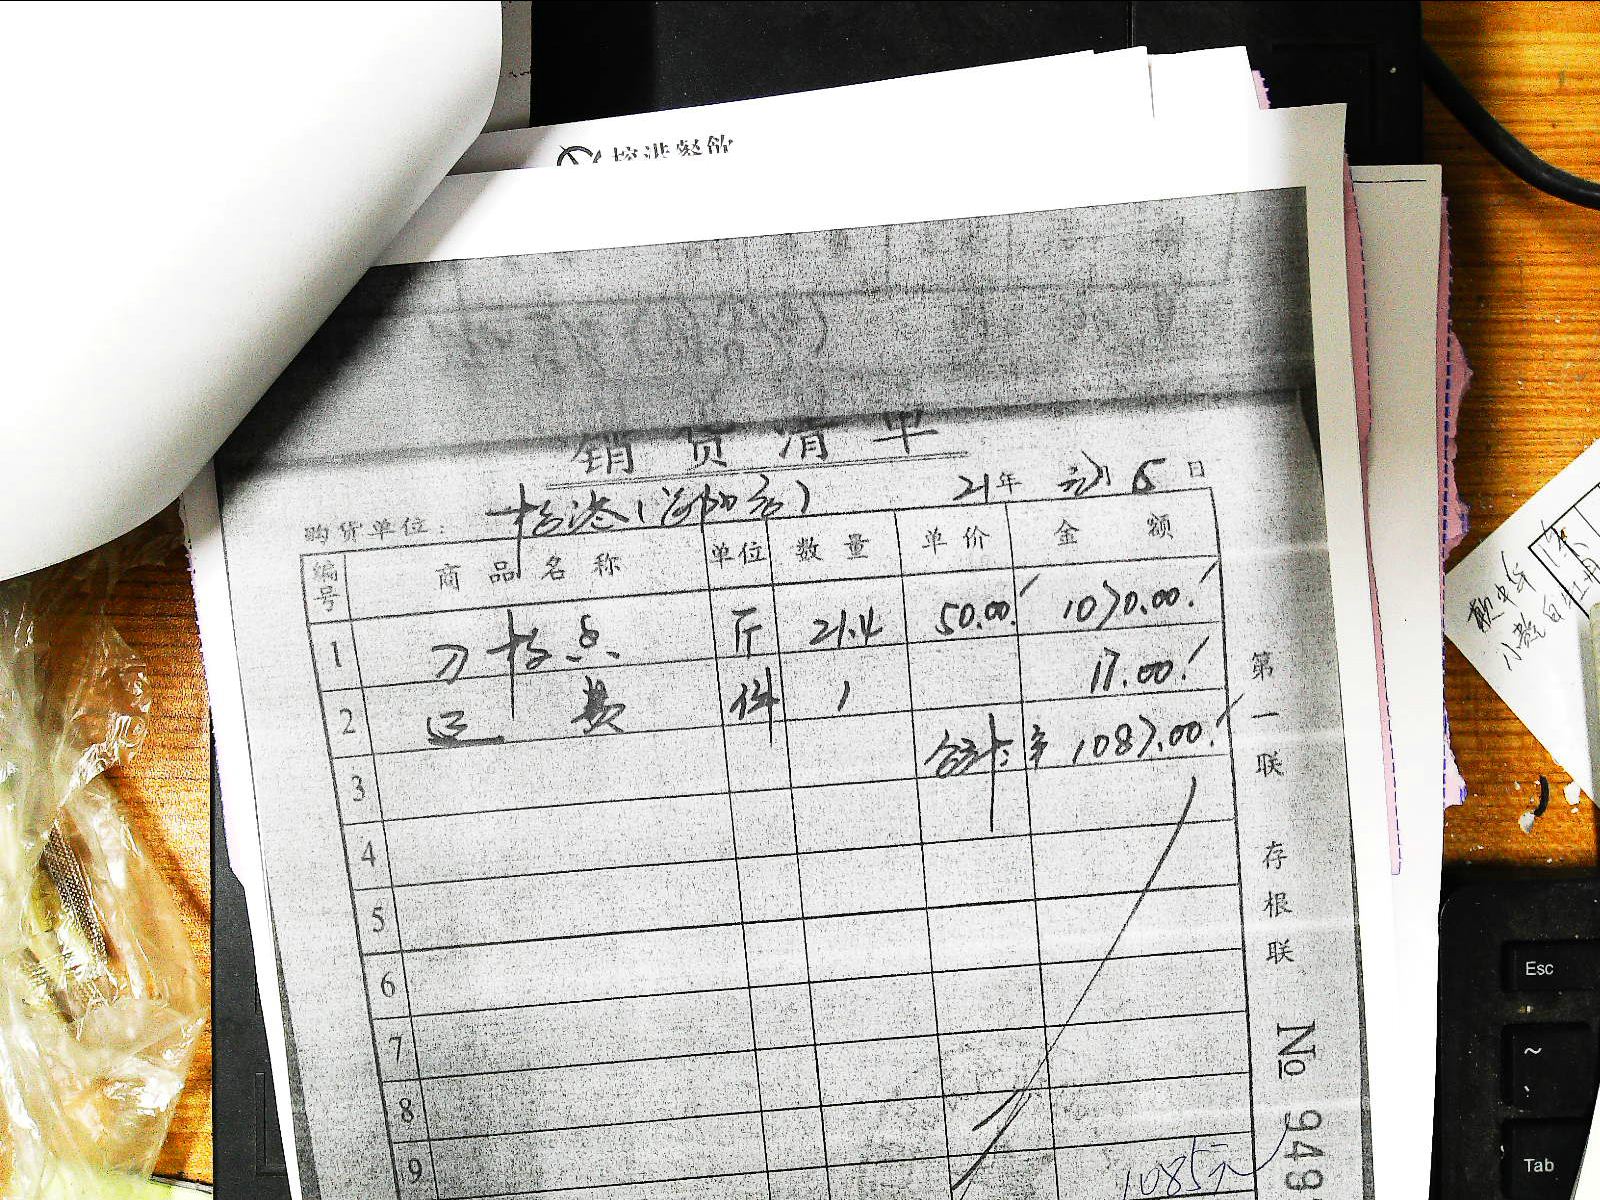 控港餐飲
销货清单
购货单位：
21年 元月 6日
编号 商品名称 单位 数量 单价 金额
1 刀 斤 21.4 50.00 1070.00
2 运费 件 1 17.00
3 合计： 1087.00
4
5
6
7
8
9
1085元
第一联 存根联 № 949
Esc
~
Tab